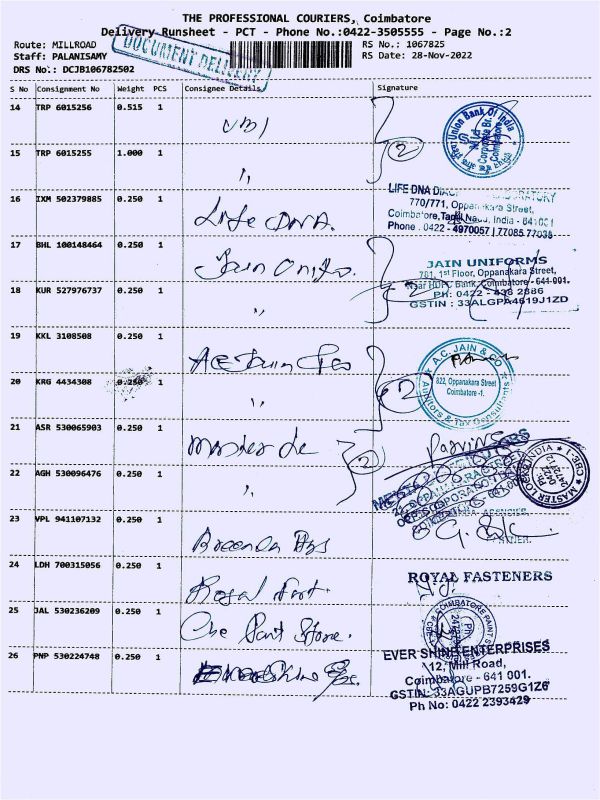 THE PROFESSIONAL COURIERS, Coimbatore
Delivery Runsheet - PCT - Phone No.:0422-3505555 - Page No.:2
Route: MILLROAD
RS No.: 1067825
Staff: PALANISAMY
RS Date: 28-Nov-2022
DRS No.: DCJB106782502
DOCUMENT DELIVERY
S No Consignment No Weight PCS Consignee Details Signature
14 TRP 6015256 0.515 1 UBI
2
Union Bank Of India
Coimbatore
15 TRP 6015255 1.000 1 ,,
16 IXM 502379885 0.250 1 Life DNA.
LIFE DNA
770/771, Oppanakara Street,
Coimbatore, Tamil Nadu, India - 641001
Phone : 0422 - 4970057 | 77085 77038
17 BHL 100148464 0.250 1 Jain Unifo.
JAIN UNIFORMS
781, 1st Floor, Oppanakara Street,
Near HDFC Bank, Coimbatore - 641 001.
PH: 0422 - 438 2886
GSTIN : 33ALGPA4619J1ZD
18 KUR 527976737 0.250 1 ,,
2
19 KKL 3108508 0.250 1 AC Jain Co
A.C. JAIN & CO
822, Oppanakara Street
Coimbatore -1.
Auditors & Tax Consultants
20 KRG 4434308 0.250 1 ,,
2
21 ASR 530065903 0.250 1 Master
2
MASTER
INDIA
CBE-1
22 AGH 530096476 0.250 1 ,,
23 VPL 941107132 0.250 1
24 LDH 700315056 0.250 1 Royal Fast.
ROYAL FASTENERS
25 JAL 530236209 0.250 1 Cbe Paint Store.
COIMBATORE PAINT
26 PNP 530224748 0.250 1
EVER SHINE ENTERPRISES
12, Mill Road,
Coimbatore - 641 001.
GSTIN: 33AGUPB7259G1Z6
Ph No: 0422 2393429